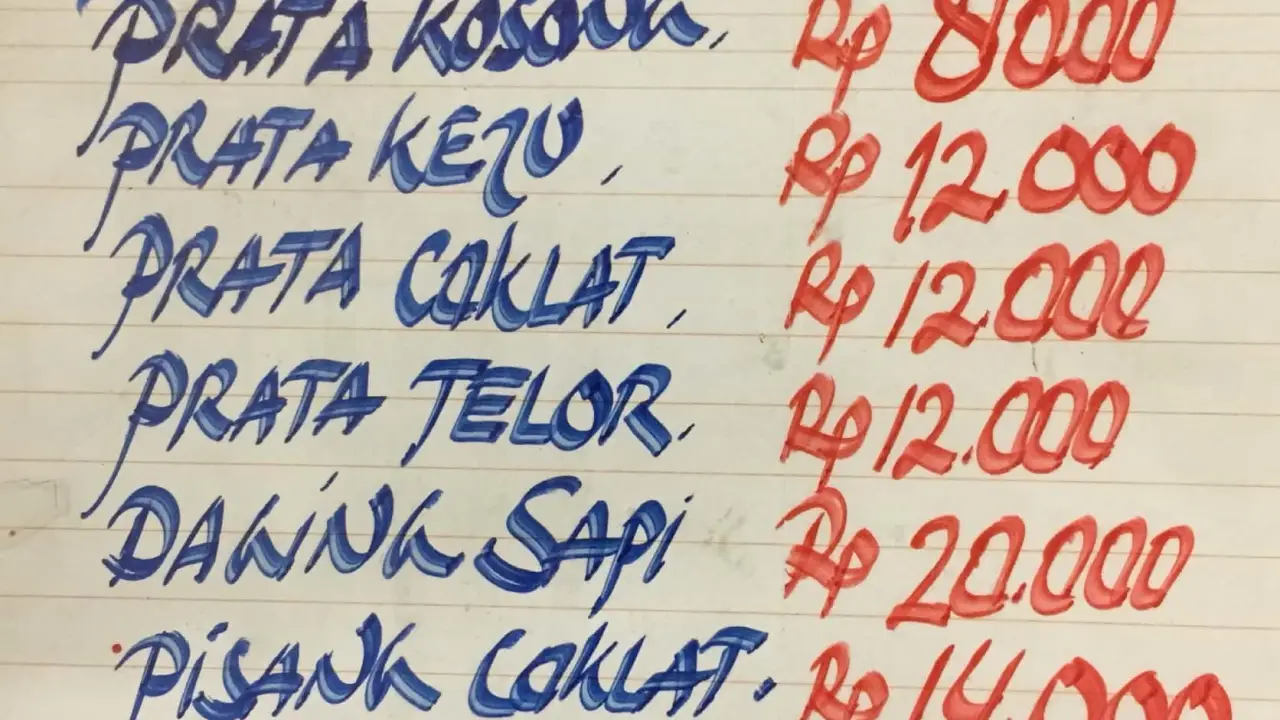 PRATA KOSONG, Rp 8.000
PRATA KEJU, Rp 12.000
PRATA COKLAT, Rp 12.000
PRATA TELOR, Rp 12.000
DAGING SAPI Rp 20.000
PISANG COKLAT. Rp 14.000